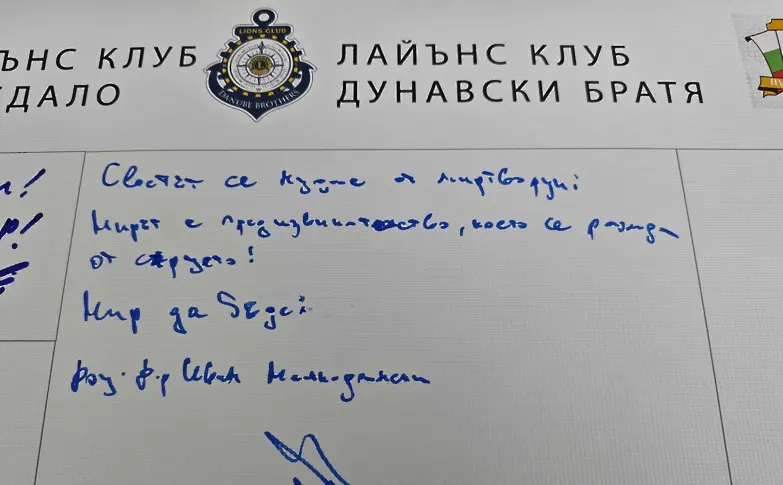 ЪНС КЛУБ
ДАЛО
LIONS CLUB
DANUBE BROTHERS
ЛАЙЪНС КЛУБ
ДУНАВСКИ БРАТЯ
Светът се нуждае от миротворци!
Мирът е предизвикателство, което се ражда
от сърцето!
Мир да бъде!
Иван